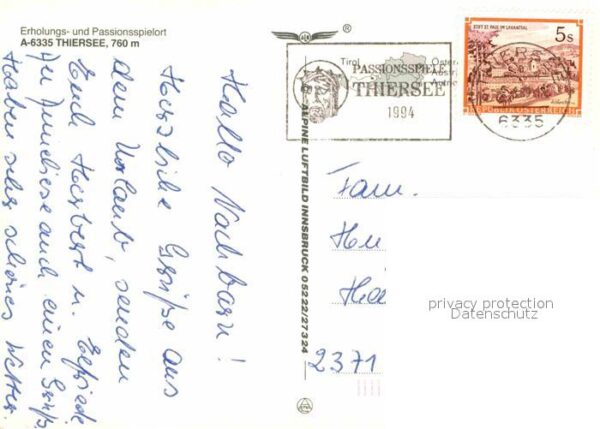 Erholungs- und Passionsspielort
A-6335 THIERSEE, 760 m
Hallo Nachbarn!
Herzliche Grüße aus
dem Urlaub, senden
Euch Herbert u. Elfriede
An Anneliese auch einen Gruß
Haben sehr schönes Wetter.
ALPINE LUFTBILD INNSBRUCK 05222/27324
Tirol
PASSIONSSPIELE
THIERSEE
1994
6335
STIFT ST. PAUL IM LAVANTTAL
5s
REPUBLIK ÖSTERREICH
Fam.
2371
privacy protection
Datenschutz